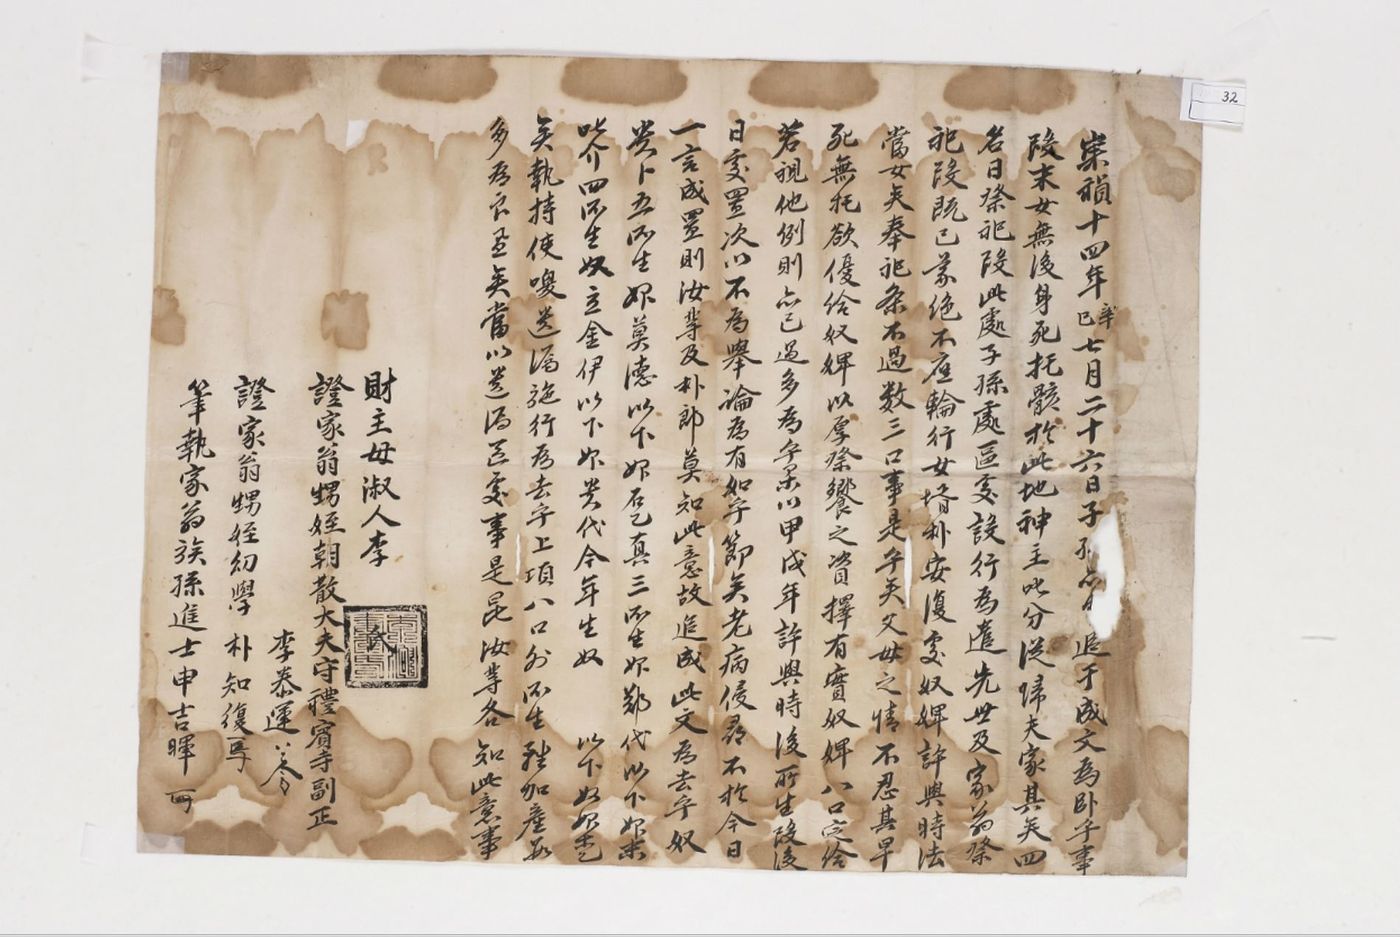 崇禎十四年辛巳七月二十六日子孫亦中追于成文為臥乎事
段末女無後身死托骸於此地神主叱分從歸夫家其矣四
名日祭祀段此處子孫處區處設行為遣先世及家翁祭
祀段旣已蒙絶不應輪行女壻朴安復處奴婢許與時法
當女矣奉祀条不過数三口事是乎矣父母之情不忍其早
死無托欲優給奴婢以厚祭饗之資擇有實奴婢八口定給
若視他例則亦已過多為乎等以甲戌年許與時後所生段後
日處置次以不為擧論為有如乎節矣老病侵尋不於今日
一言成置則汝輩及朴郎莫知此意故追成此文為去乎奴
婢卜五所生婢莫德以下婢石乙真三所生婢鄭代以下婢末
叱介四所生奴立金伊以下婢貴代今年生奴 以下奴婢等乙
矣執持使嗅送為施行為去乎上項八口外所生雖加産數
多為良置矣當以送為區處事是昆汝等各知此意事
財主母淑人李
證家翁甥姪朝散大夫守禮賓寺副正
李泰運
證家翁甥姪幼學 朴知復
筆執家翁族孫進士申吉暉
32